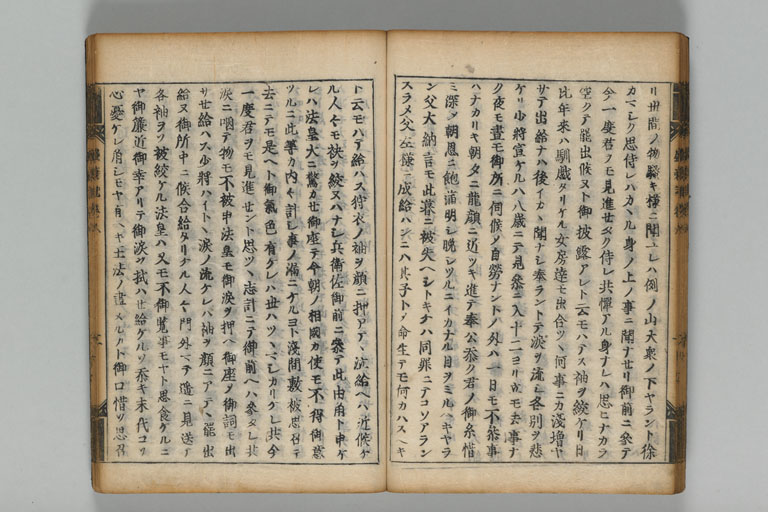 リ世間ノ物騒キ様ニ聞ユレハ例ノ山大衆ノ下ヤラント徐
カマシク思侍レハカヽル身ノ上ノ事ニ聞ナセリ御前ニ参テ
今一度君ヲモ見進セハヤト侍レ共憚アル身ナレハ思ヒナカラ
空クテ罷出候ヌト御披露アレト云モハテス袖ヲ絞ケリ日
比年来ハ馴戯タリケル女房達モ出合ツヽ何事ニカ浅増ヤ
サテ出給ナハ後イカヽ聞ナシ奉ラントテ涙ヲ流シ各別ヲ悲
ケリ少將宣ケルハ八歳ニテ見参ニ入十二ヨリ夜モ去事ナ
ク夜モ晝モ御所ニ伺候ノ自勞ナントノ外ハ一日モ不参事
ハナカリキ朝タニ龍顔ニ近ツキ進テ奉公忝ク君ノ御糸惜
ミ深メ朝恩ニ飽満明シ晩シツルニイカナル目ヲミルヘキヤラ
ン父大納言モ此暮ニ被失ヘシトキケハ同罪ニテコソアラン
スラメ父左様ニ成給ハンニハ其子トノ命生テモ何カハスヘキ
ト云モハテ給ハス狩衣ノ袖ヲ顔ニ押アテヽ泣給ヘハ近候ケ
ル人々モ袂ヲ絞ヌハナシ兵衛佐御前ニ参テ此由角ト申ケ
レハ法皇大ニ驚カセ御座テ今朝ノ相國カ使モ不得御意
ツルニ此等カ内々計シ事ノ漏ニケルヨト浅間敷被思召テ
去ニテモ是ヘト御氣色有ケレハ世ハツヽマシカリケレ共今
一度君ヲモ見進セント思ツヽ志計ニテ御前ヘハ参タレ共
涙ニ咽テ物モ不被申法皇モ御涙ヲ押ヘ御座ノ御詞モ出
サセ給ハス少將ハイトヽ涙ノ流ケレハ袖ヲ顔ニアテヽ罷出
給ヌ御所中ニ候合給タリケル人々門外マテ遥ニ見送テ
各袖ヲソ被絞ケル法皇ハ又モ不御覧事モヤト思食ケルニ
ヤ御簾近御幸アリテ御涙ヲ拭ハセ給ケルソ忝キ末代コソ
心憂ケレ角シモヤ有ヘキ王法ノ盡ヌルカト御口惜ソ思召